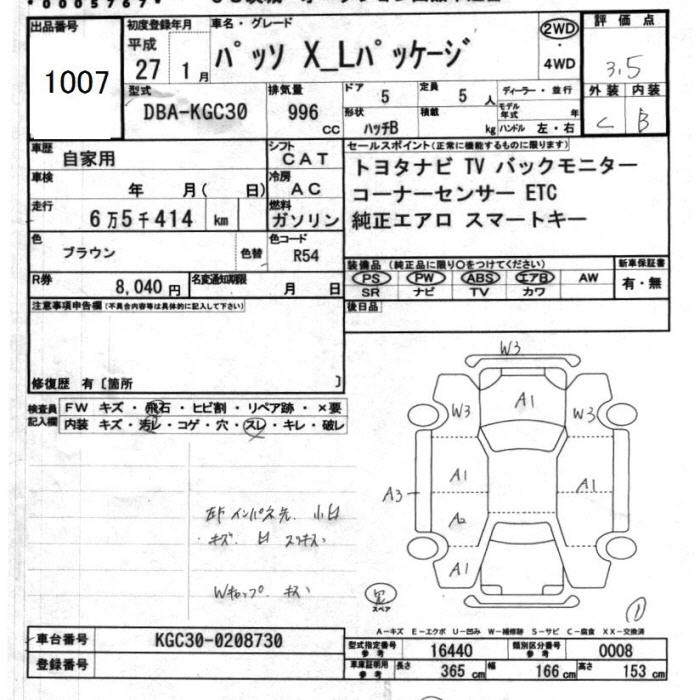 出品番号
1007
初度登録年月
平成
27 1月
車名・グレード
パッソ X_Lパッケージ
2WD
・
4WD
評価点
3.5
外装 内装
C B
型式
DBA-KGC30
排気量
996
cc
ドア 5
定員 5 人
形状
ハッチB
積載
kg
ディーラー・並行
モデル年式 年
ハンドル 左・右
車歴
自家用
シフト
CAT
車検
年 月( 日)
冷房
AC
走行
6万5千414 km
燃料
ガソリン
色
ブラウン
色替
色コード
R54
R券
8,040円
名変通知期限
月 日
セールスポイント(正常に機能するものに限ります)
トヨタナビ TV バックモニター
コーナーセンサー ETC
純正エアロ スマートキー
装備品(純正品に限り○をつけてください)
新車保証書
PS PW ABS エアB AW
SR ナビ TV カワ
有・無
後日品
注意事項申告欄(不具合内容等は具体的に記入して下さい)
修復歴 有〔箇所 〕
検査員記入欄
FW キズ・飛石・ヒビ割・リペア跡・×要
内装 キズ・汚レ・コゲ・穴・スレ・キレ・破レ
W3
A1
W3
W3
A1
A1
A3
A2
A1
スペア
A-キズ E-エクボ U-凹み W-補修跡 S-サビ C-腐食 XX-交換済
車台番号
KGC30-0208730
登録番号
型式指定番号
参考
16440
類別区分番号
参考
0008
車庫証明用
参考
長さ 365 cm
幅 166 cm
高さ 153 cm